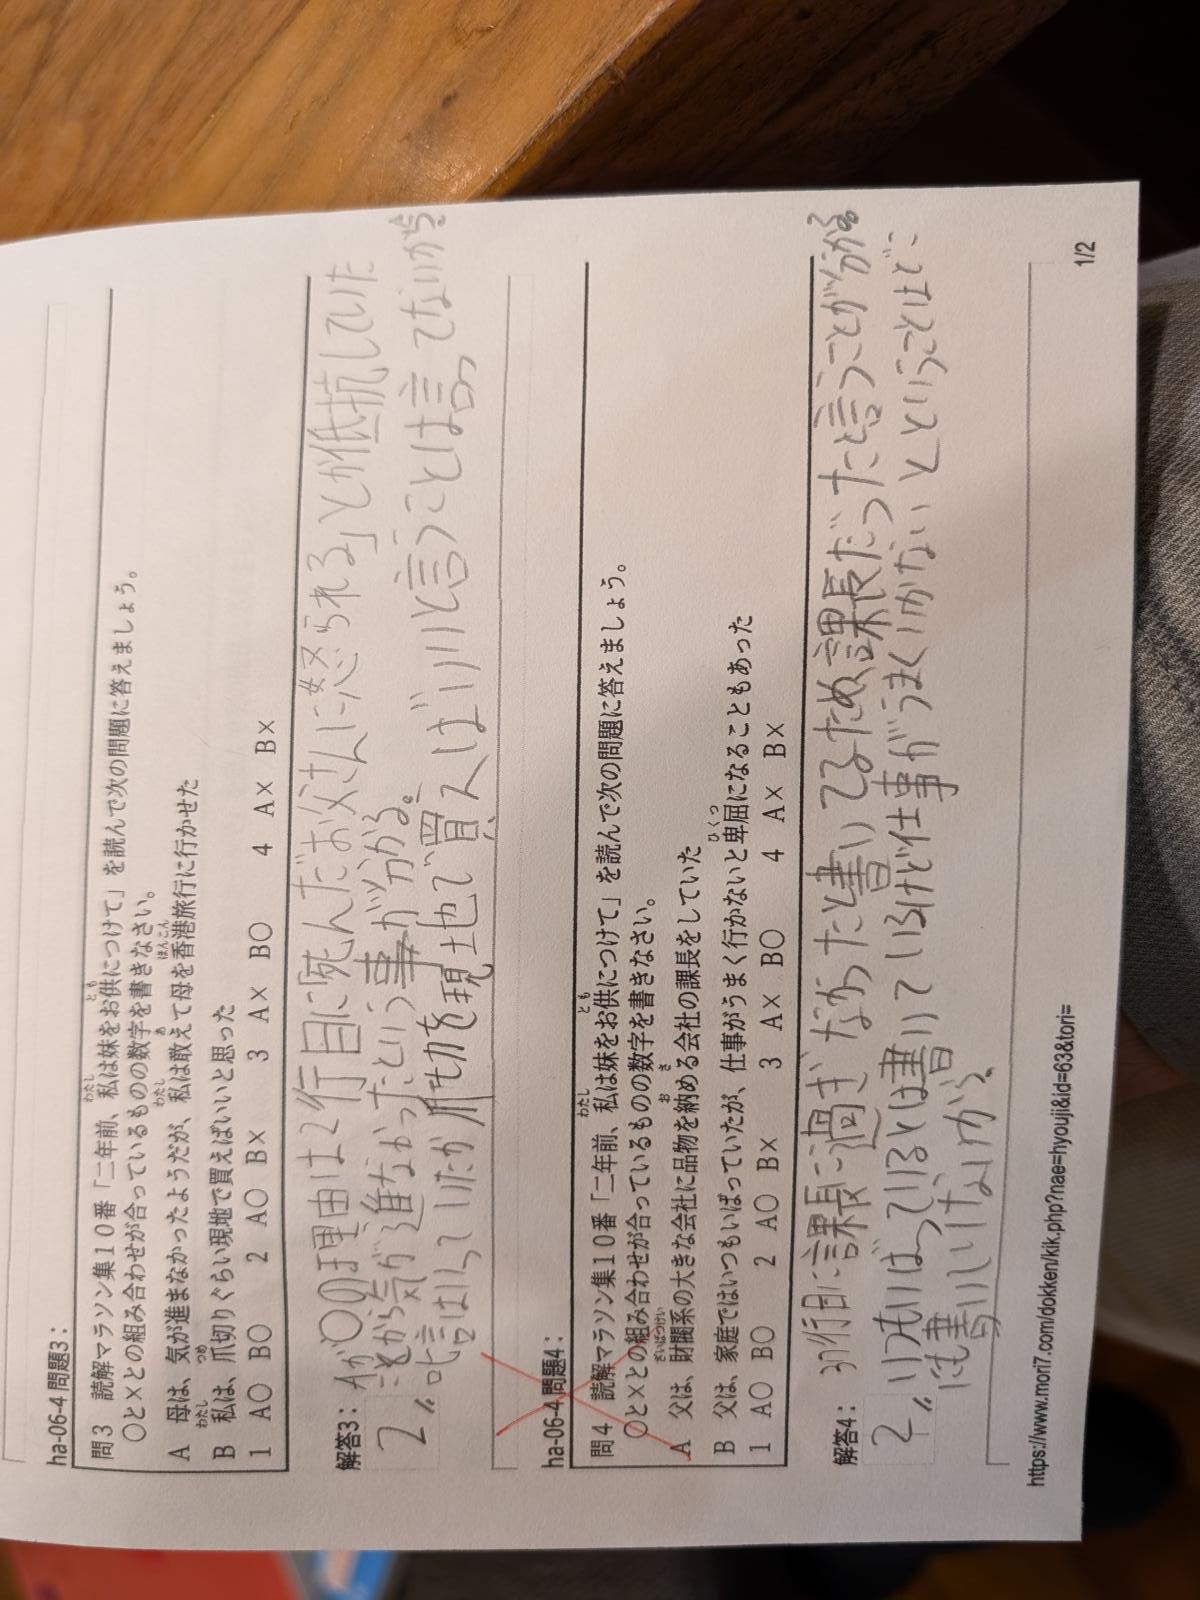 ha-06-4 問題3:
問3 読解マラソン集10番「二年前、私は妹をお供につけて」を読んで次の問題に答えましょう。
わたし とも
〇と×との組み合わせが合っているものの数字を書きなさい。
A 母は、気が進まなかったようだが、私は敢えて母を香港旅行に行かせた
わたし あ ほんこん
B 私は、爪切りぐらい現地で買えばいいと思った
わたし つめ
1 A〇 B〇 2 A〇 B× 3 A× B〇 4 A× B×
解答3:
2〃
Aが〇の理由は2行目に「死んだお父さんに怒られる」とか低抗していた
から気が進なかったという事が分かる。
叱言はいっていたが爪切を現地で買えばいいと言うことは言ってないから
ha-06-4 問題4:
問4 読解マラソン集10番「二年前、私は妹をお供につけて」を読んで次の問題に答えましょう。
わたし とも
〇と×との組み合わせが合っているものの数字を書きなさい。
A 父は、財閥系の大きな会社に品物を納める会社の課長をしていた
ざいばつけい おさ
B 父は、家庭ではいつもいばっていたが、仕事がうまく行かないと卑屈になることもあった
ひくつ
1 A〇 B〇 2 A〇 B× 3 A× B〇 4 A× B×
解答4:
2〃
37行目に課長に過ぎなかったと書いてるため課長だったと言うことが分かる
いつもいばっているとは書いているけど仕事がうまくいかないとということはど、
にも書いていないから。
https://www.mori7.com/dokken/kik.php?nae=hyouji&id=63&tori=
1/2